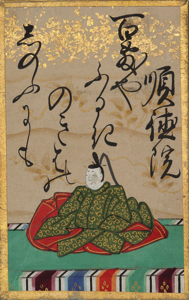 順徳院
百敷や
ふるき
のきはの
しのふにも